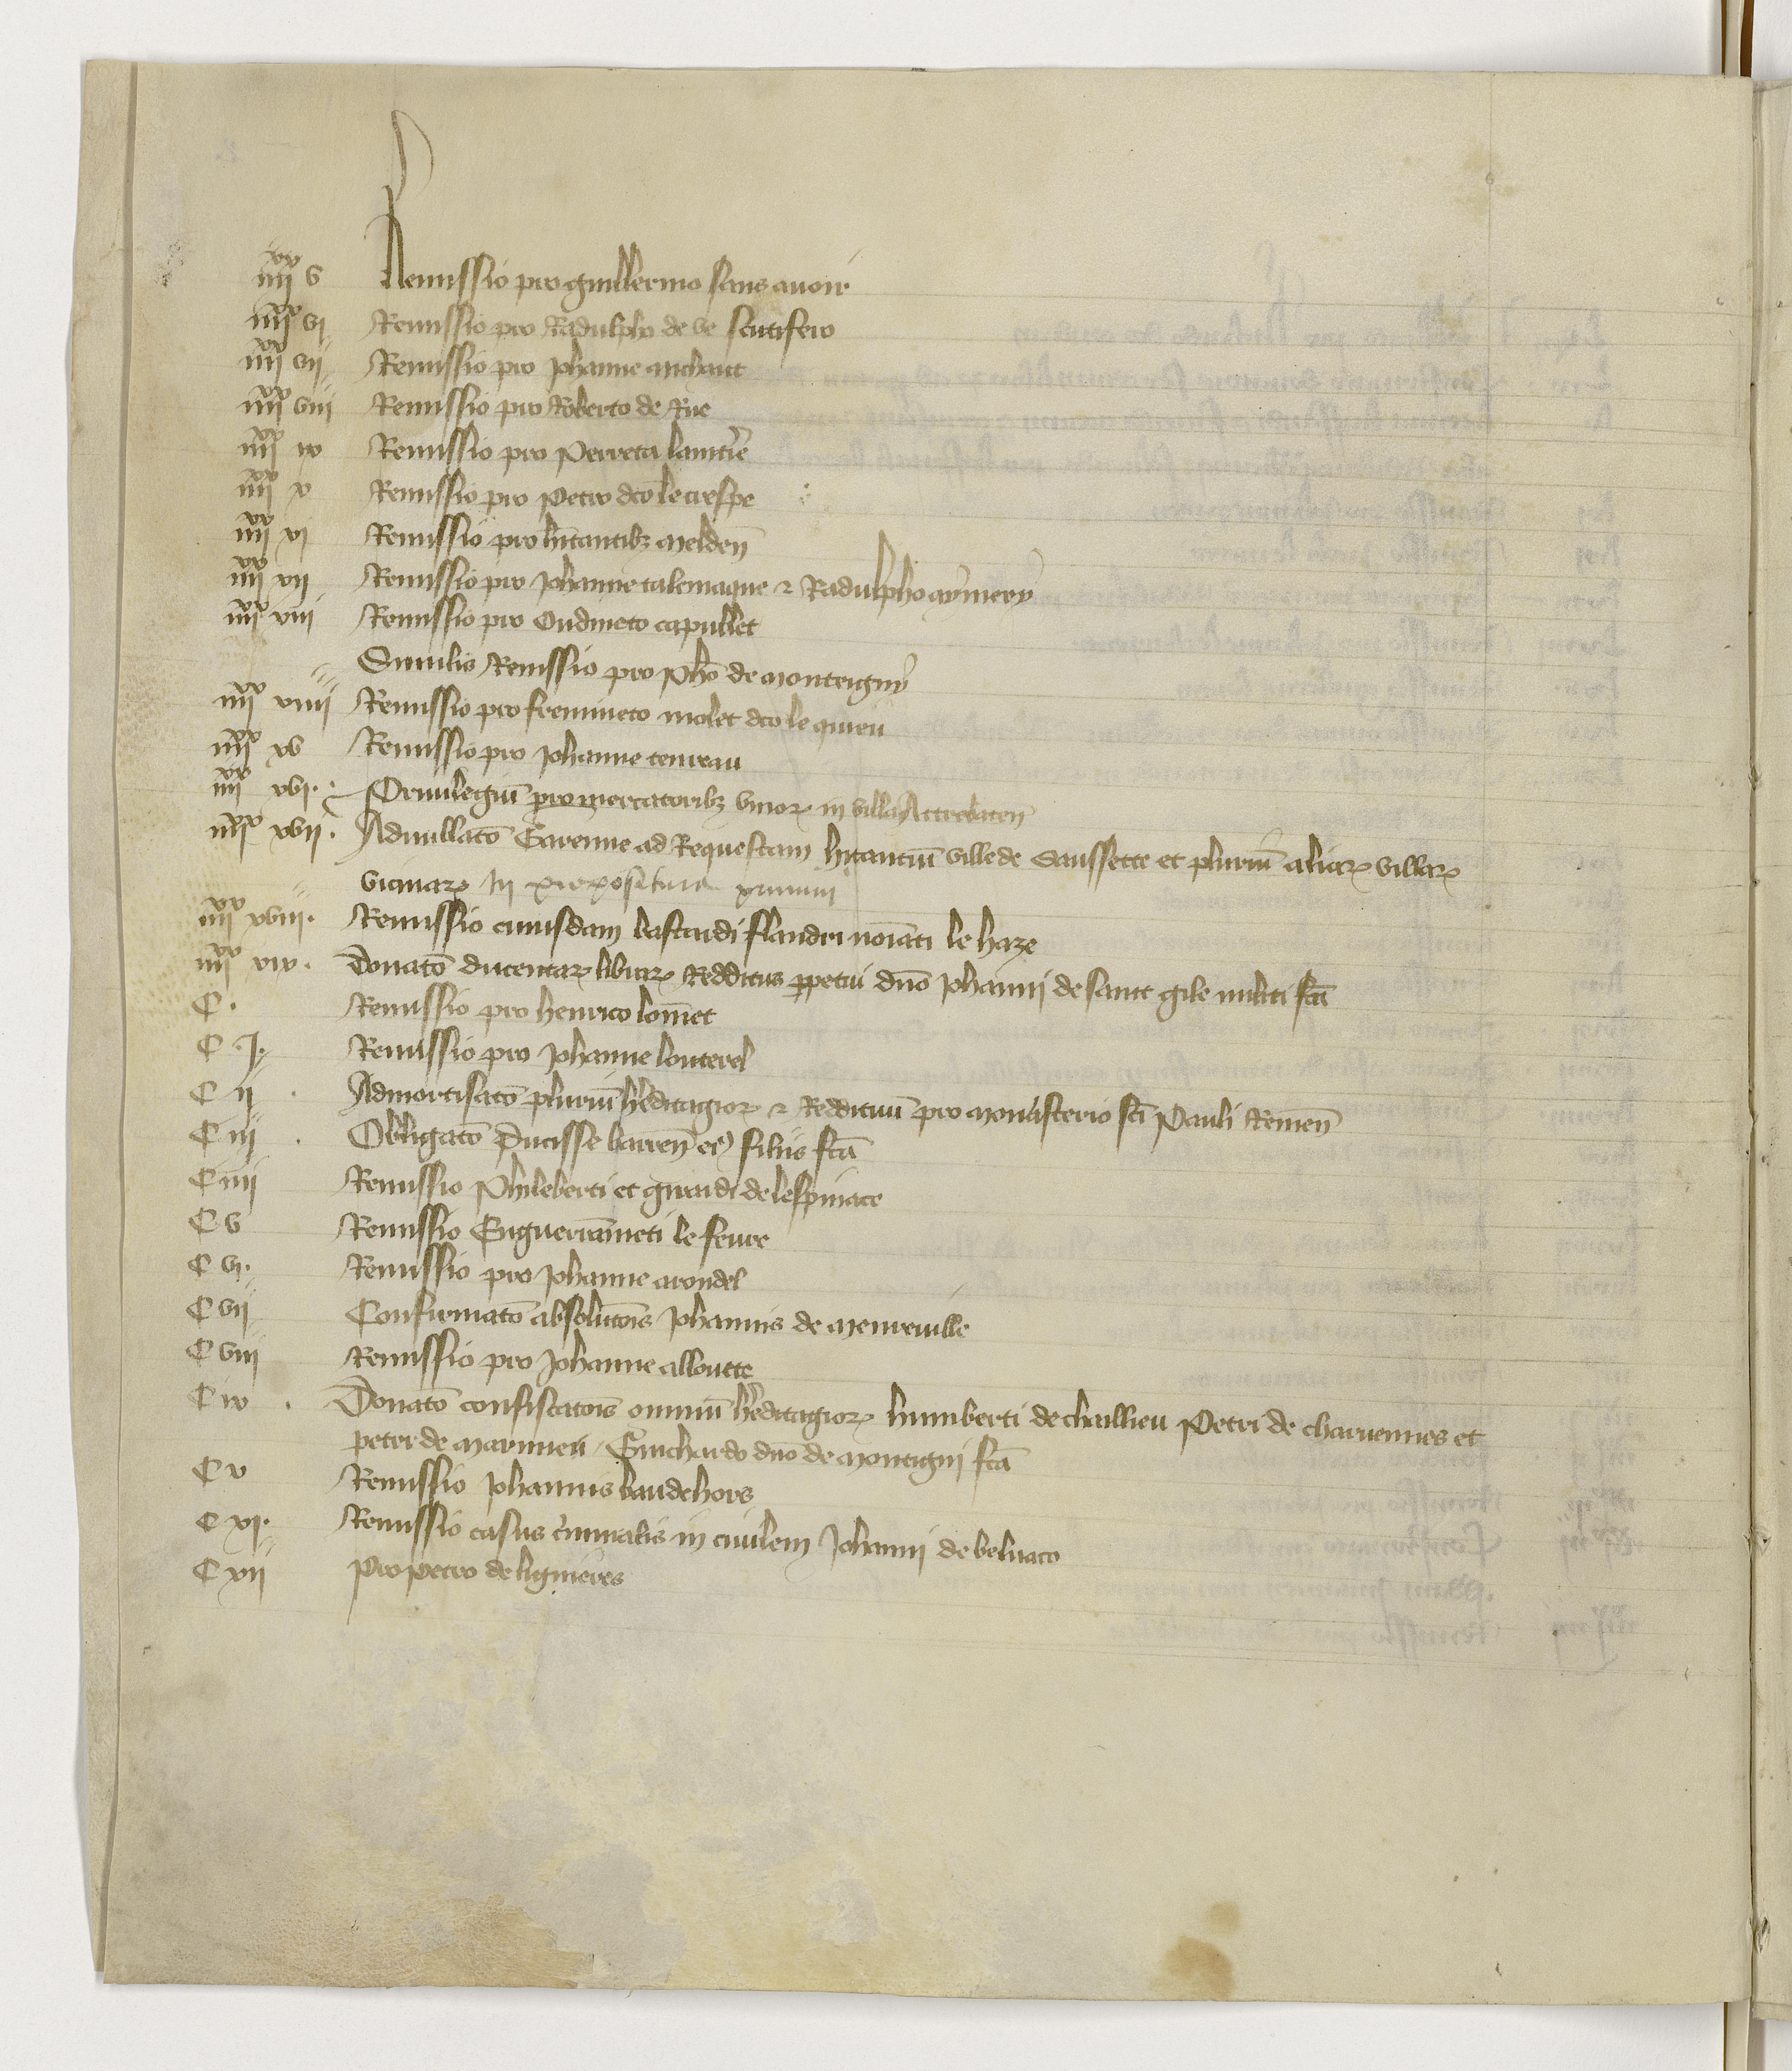 iiii xx v Remissio pro guillermo sans avoir
iiii xx vi Remissio pro Radulpho de ve scutifero
iiii xx vii Remissio pro Johanne anchant
iiii xx viii Remissio pro Roberto de Rue
iiii xx ix Remissio pro Perreta
iiii xx x Remissio pro Petro dco le crespe
iiii xx xi Remissio pro hitantibz melden
iiii xx xii Remissio pro Johanne talemaque et Radulpho aymery
iiii xx xiii Remissio pro Oudineto capullet
Similis Remissio pro Pho de monteigny
iiii xx xiiii Remissio pro fremineto molet dco le quieu
iiii xx xv Remissio pro Johanne
iiii xx xvi. Privilegiu pro mercatoribz vinor in villa Attrebaten
iiii xx xvii. Adnullato Garenne ad Requestam hitantiu ville de Saussette et pluriu aliar villar
vicinar in prepositura
iiii xx xviii. Remissio cuiusdam bastardi flandri noiati le haze
iiii xx xix. Donato ducentar librar Redditus ppetui dno Johanni de sant gile militi fca
C. Remissio pro henrico lomet
C. j. Remissio pro Johanne louterel
C ij. Admortisato pluriu hreditagior et Reddituu pro monasterio sci Pauli Remen
C iij. Obligato Ducisse barren ei9 filiis fca
C iiij Remissio Phileberti et girardi de lespinace
C v Remissio Enguerraneti le fevre
C vi. Remissio pro Johanne arondel
C vii Confirmato absolutois Johannis de menreville
C viii Remissio pro Johanne alloutte
C ix. Donato confiscatois omniu hreditagior humberti de chaillieu Petri de charvennes et
peter de marinieu Guichardo dno de montigni fca
C x Remissio Johannis baudehors
C xi. Remissio casus criminalis in civilem Johanni de belvaco
C xii Pro petro de lignieres